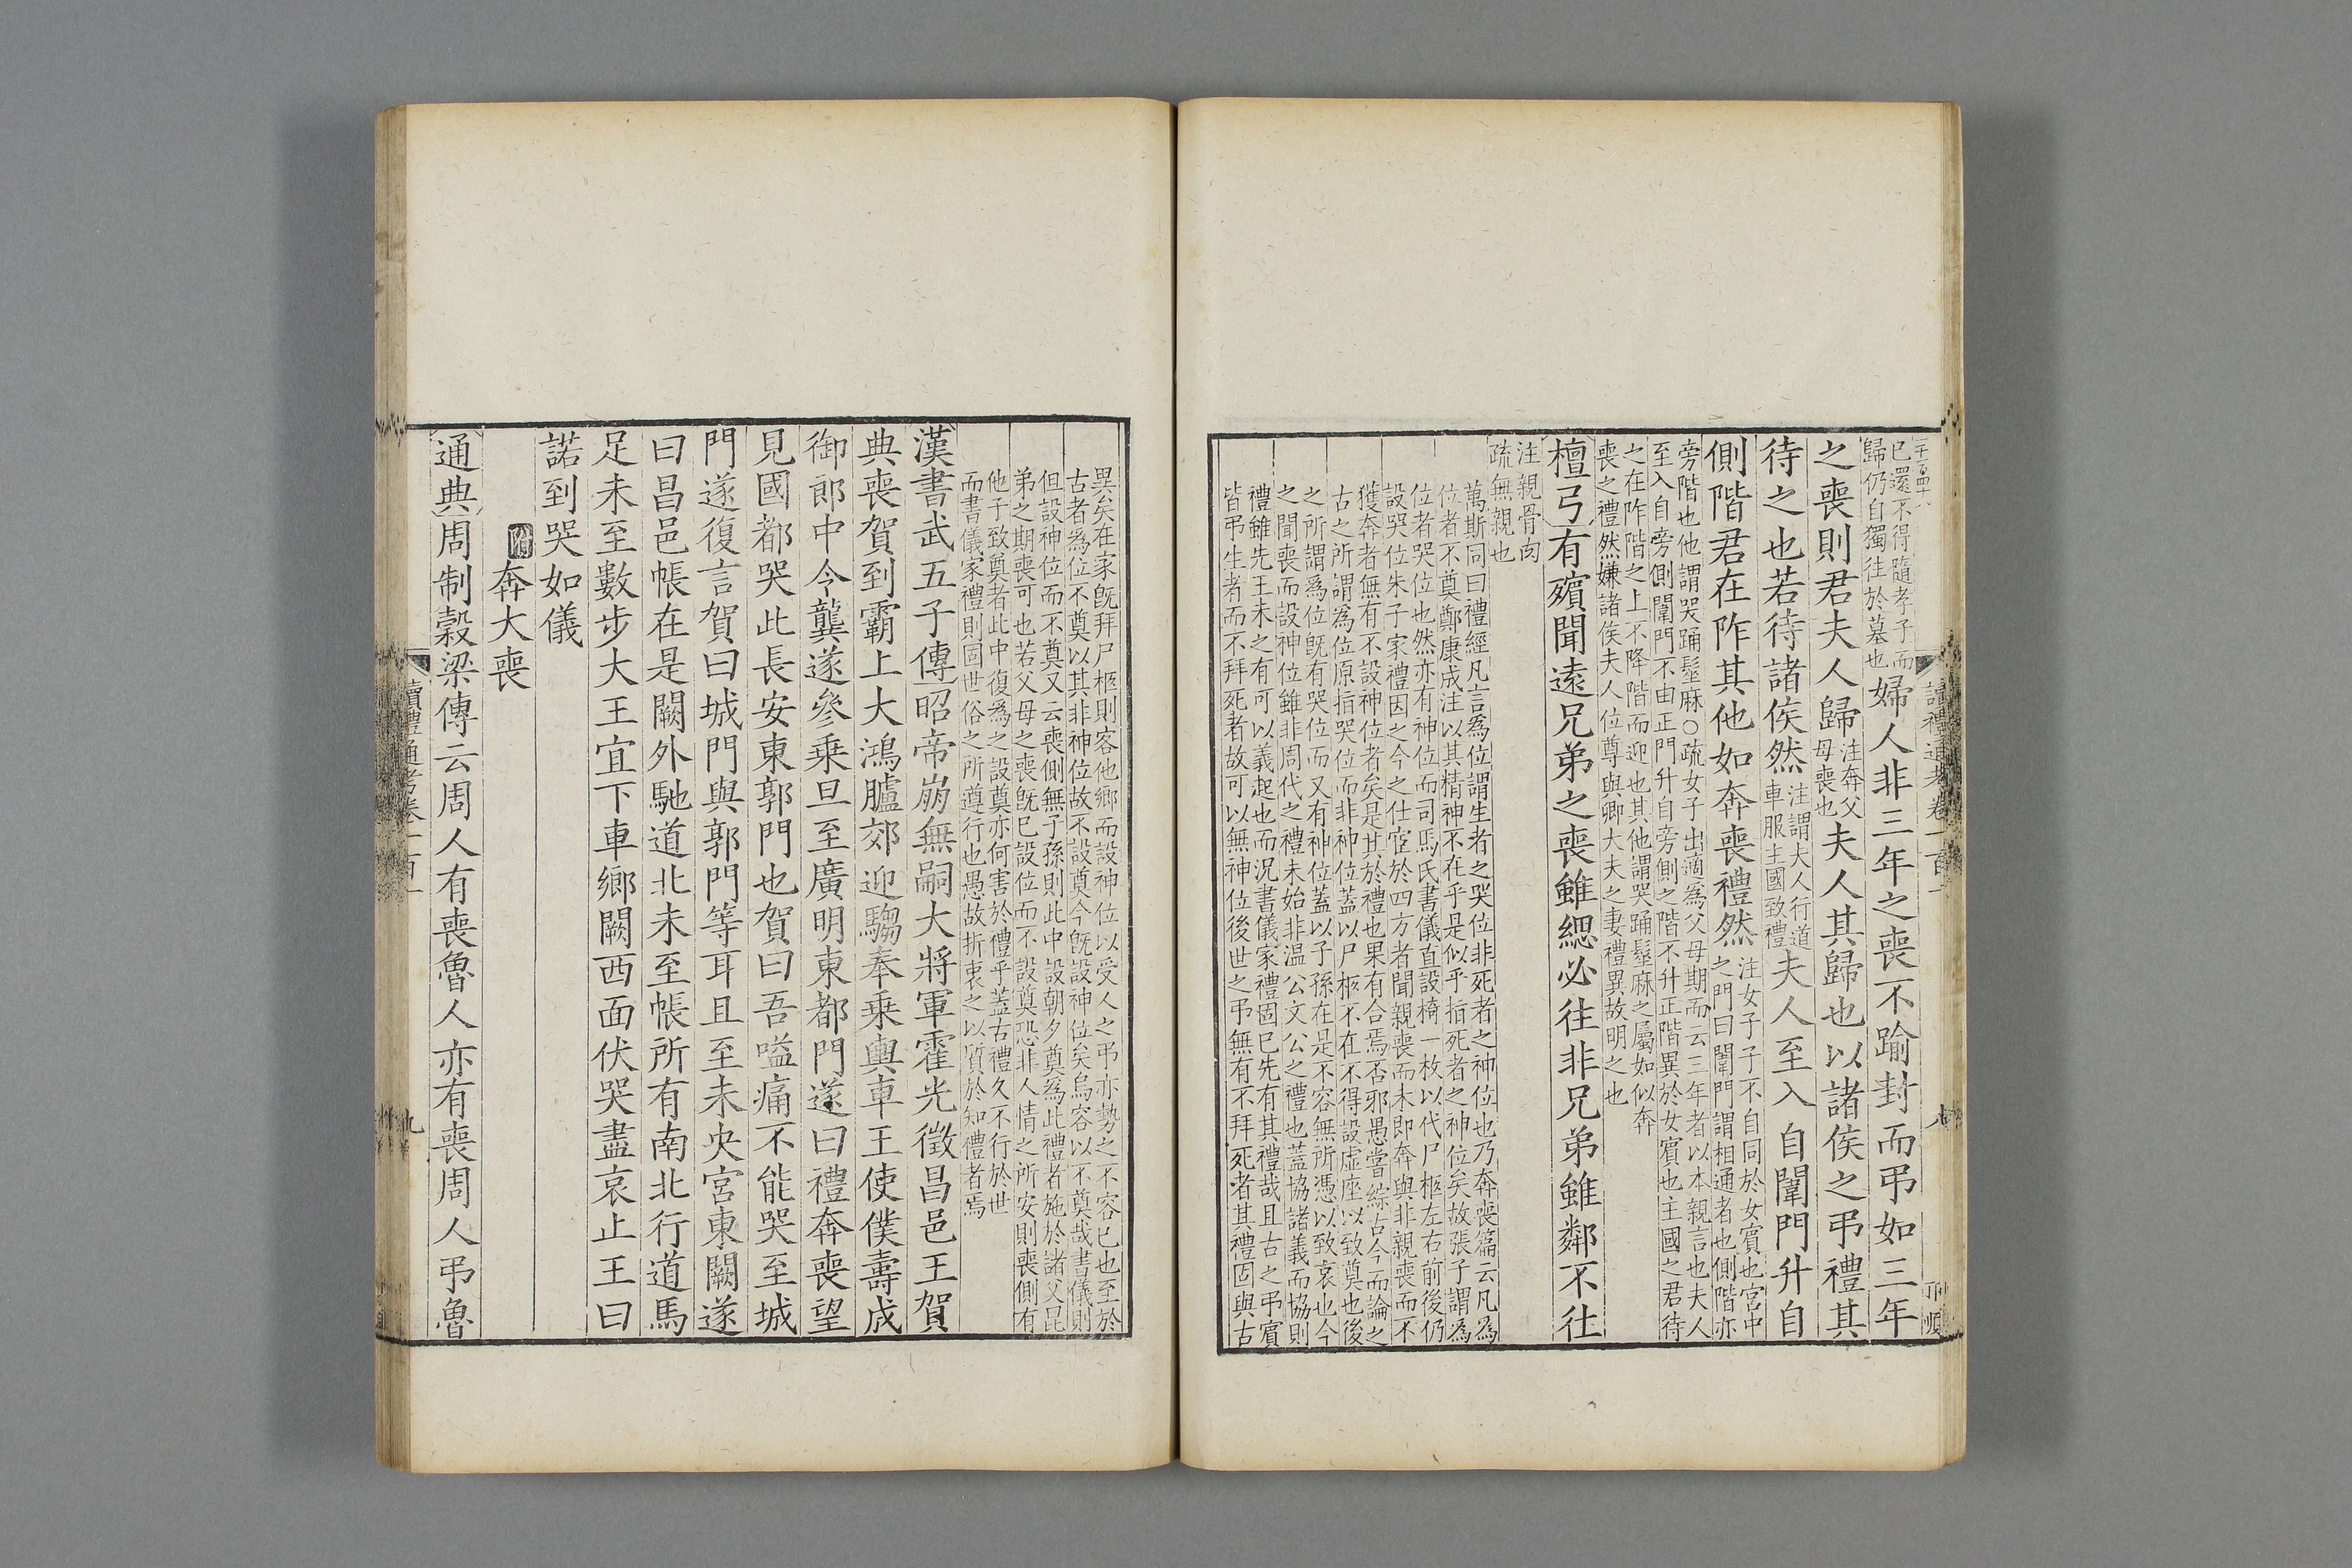 已還不得隨孝子而
歸仍自獨往於墓也
婦人非三年之喪不踰封而弔如三年
之喪則君夫人歸
注奔父
母喪也
夫人其歸也以諸侯之弔禮其
待之也若待諸侯然
注謂夫人行道
車服主國致禮
夫人至入自闈門升自
側階君在阼其他如奔喪禮然
注女子子不自同於女賓也宮中
之門曰闈門謂相通者也側階亦
旁階也他謂哭踊髽麻○疏女子出適為父母期而云三年者以本親言也夫人
至入自旁側闈門不由正門升自旁側之階不升正階異於女賓也主國之君待
之在阼階之上不降階而迎也其他謂哭踊髽麻之屬如似奔
喪之禮然嫌諸侯夫人位尊與卿大夫之妻禮異故明之也
檀弓有殯聞遠兄弟之喪雖緦必往非兄弟雖鄰不往
注親骨肉
疏無親也
萬斯同曰禮經凡言為位謂生者之哭位非死者之神位也乃奔喪篇云凡為
位者不奠鄭康成注以其精神不在乎是似乎指死者之神位矣故張子謂為
位者哭位也然亦有神位而司馬氏書儀直設椅一枚以代尸柩左右前後仍
設哭位朱子家禮因之今之仕宦於四方者聞親喪而未即奔與非親喪而不
獲奔者無有不設神位者矣是其於禮也果有合焉否邪愚嘗綜古今而論之
古之所謂為位原指哭位而非神位蓋以尸柩不在不得設虛座以致奠也後
之所謂為位既有哭位而又有神位蓋以子孫在是不容無所憑以致哀也今
之聞喪而設神位雖非周代之禮未始非溫公文公之禮也蓋協諸義而協則
禮雖先王未之有可以義起也而況書儀家禮固已先有其禮哉且古之弔賓
皆弔生者而不拜死者故可以無神位後世之弔無有不拜死者其禮固與古
讀禮通考卷一百一
異矣在家既拜尸柩則客他鄉而設神位以受人之弔亦勢之不容已也至於
古者為位不奠以其非神位故不設奠今既設神位矣烏容以不奠哉書儀則
但設神位而不奠又云喪側無子孫則此中設朝夕奠為此禮者施於諸父昆
弟之期喪可也若父母之喪既已設位而不設奠恐非人情之所安則喪側有
他子致奠者此中復為之設奠亦何害於禮乎蓋古禮久不行於世
而書儀家禮則固世俗之所遵行也愚故折衷之以質於知禮者焉
漢書武五子傳昭帝崩無嗣大將軍霍光徵昌邑王賀
典喪賀到霸上大鴻臚郊迎騶奉乘輿車王使僕壽成
御郎中令龔遂參乘旦至廣明東都門遂曰禮奔喪望
見國都哭此長安東郭門也賀曰吾嗌痛不能哭至城
門遂復言賀曰城門與郭門等耳且至未央宮東闕遂
曰昌邑帳在是闕外馳道北未至帳所有南北行道馬
足未至數步大王宜下車鄉闕西面伏哭盡哀止王曰
諾到哭如儀
附奔大喪
通典周制穀梁傳云周人有喪魯人亦有喪周人弔魯
讀禮通考卷一百一
九